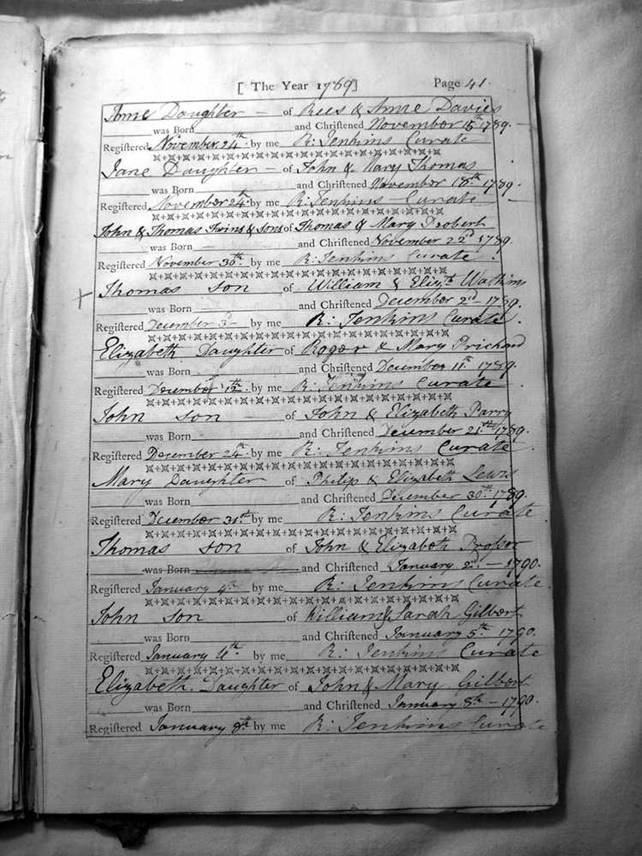 [ The Year 1789] Page 41.
Anne Daughter — of Rees & Anne Davies
was Born and Chriſtened November 15th 1789.
Regiſtered November 24th by me R: Jenkins Curate
Jane Daughter — of John & Mary Thomas
was Born and Chriſtened November 18th 1789.
Regiſtered November 24th by me R: Jenkins Curate
John & Thomas Twins & sons of Thomas & Mary Probert
was Born and Chriſtened November 22d 1789.
Regiſtered November 30th by me R: Jenkins Curate
Thomas son of William & Elizth Watkins
was Born and Chriſtened December 2d 1789.
Regiſtered December 3 by me R: Jenkins Curate
Elizabeth Daughter of Roger & Mary Prichard
was Born and Chriſtened December 11th 1789.
Regiſtered December by me R: Jenkins Curate
John son of John & Elizabeth Parry
was Born and Chriſtened December 21st 1789.
Regiſtered December 24th by me R: Jenkins Curate
Mary Daughter of Philip & Elizabeth Lewis
was Born and Chriſtened December 30th 1789.
Regiſtered December 31st by me R: Jenkins Curate
Thomas son of John & Elizabeth Proſser
was Born and Chriſtened January 2d — 1790.
Regiſtered January 4th by me R: Jenkins Curate
John son of William & Sarah Gilbert
was Born and Chriſtened January 5th 1790.
Regiſtered January by me R: Jenkins Curate
Elizabeth Daughter of John & Mary Gilbert
was Born and Chriſtened January 8th — 1790.
Regiſtered January 8th by me R: Jenkins Curate